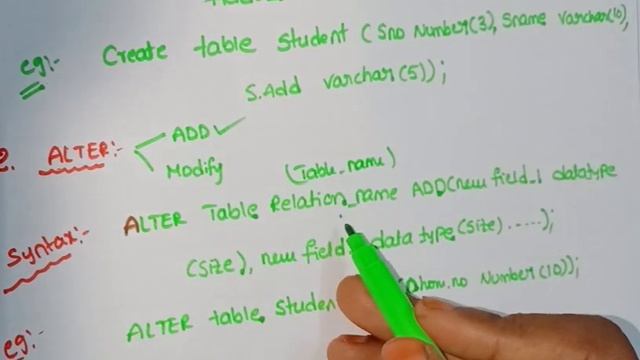 eg:- Create table Student (Sno Number(3), Sname varchar(10),
S.Add varchar(5));
2. ALTER:- ADD ✓
Modify
(Table_name)
Syntax:- ALTER Table Relation_name ADD(new field_1 datatype
(size), new field data type(size).....);
eg:- ALTER table Student no Number(10));